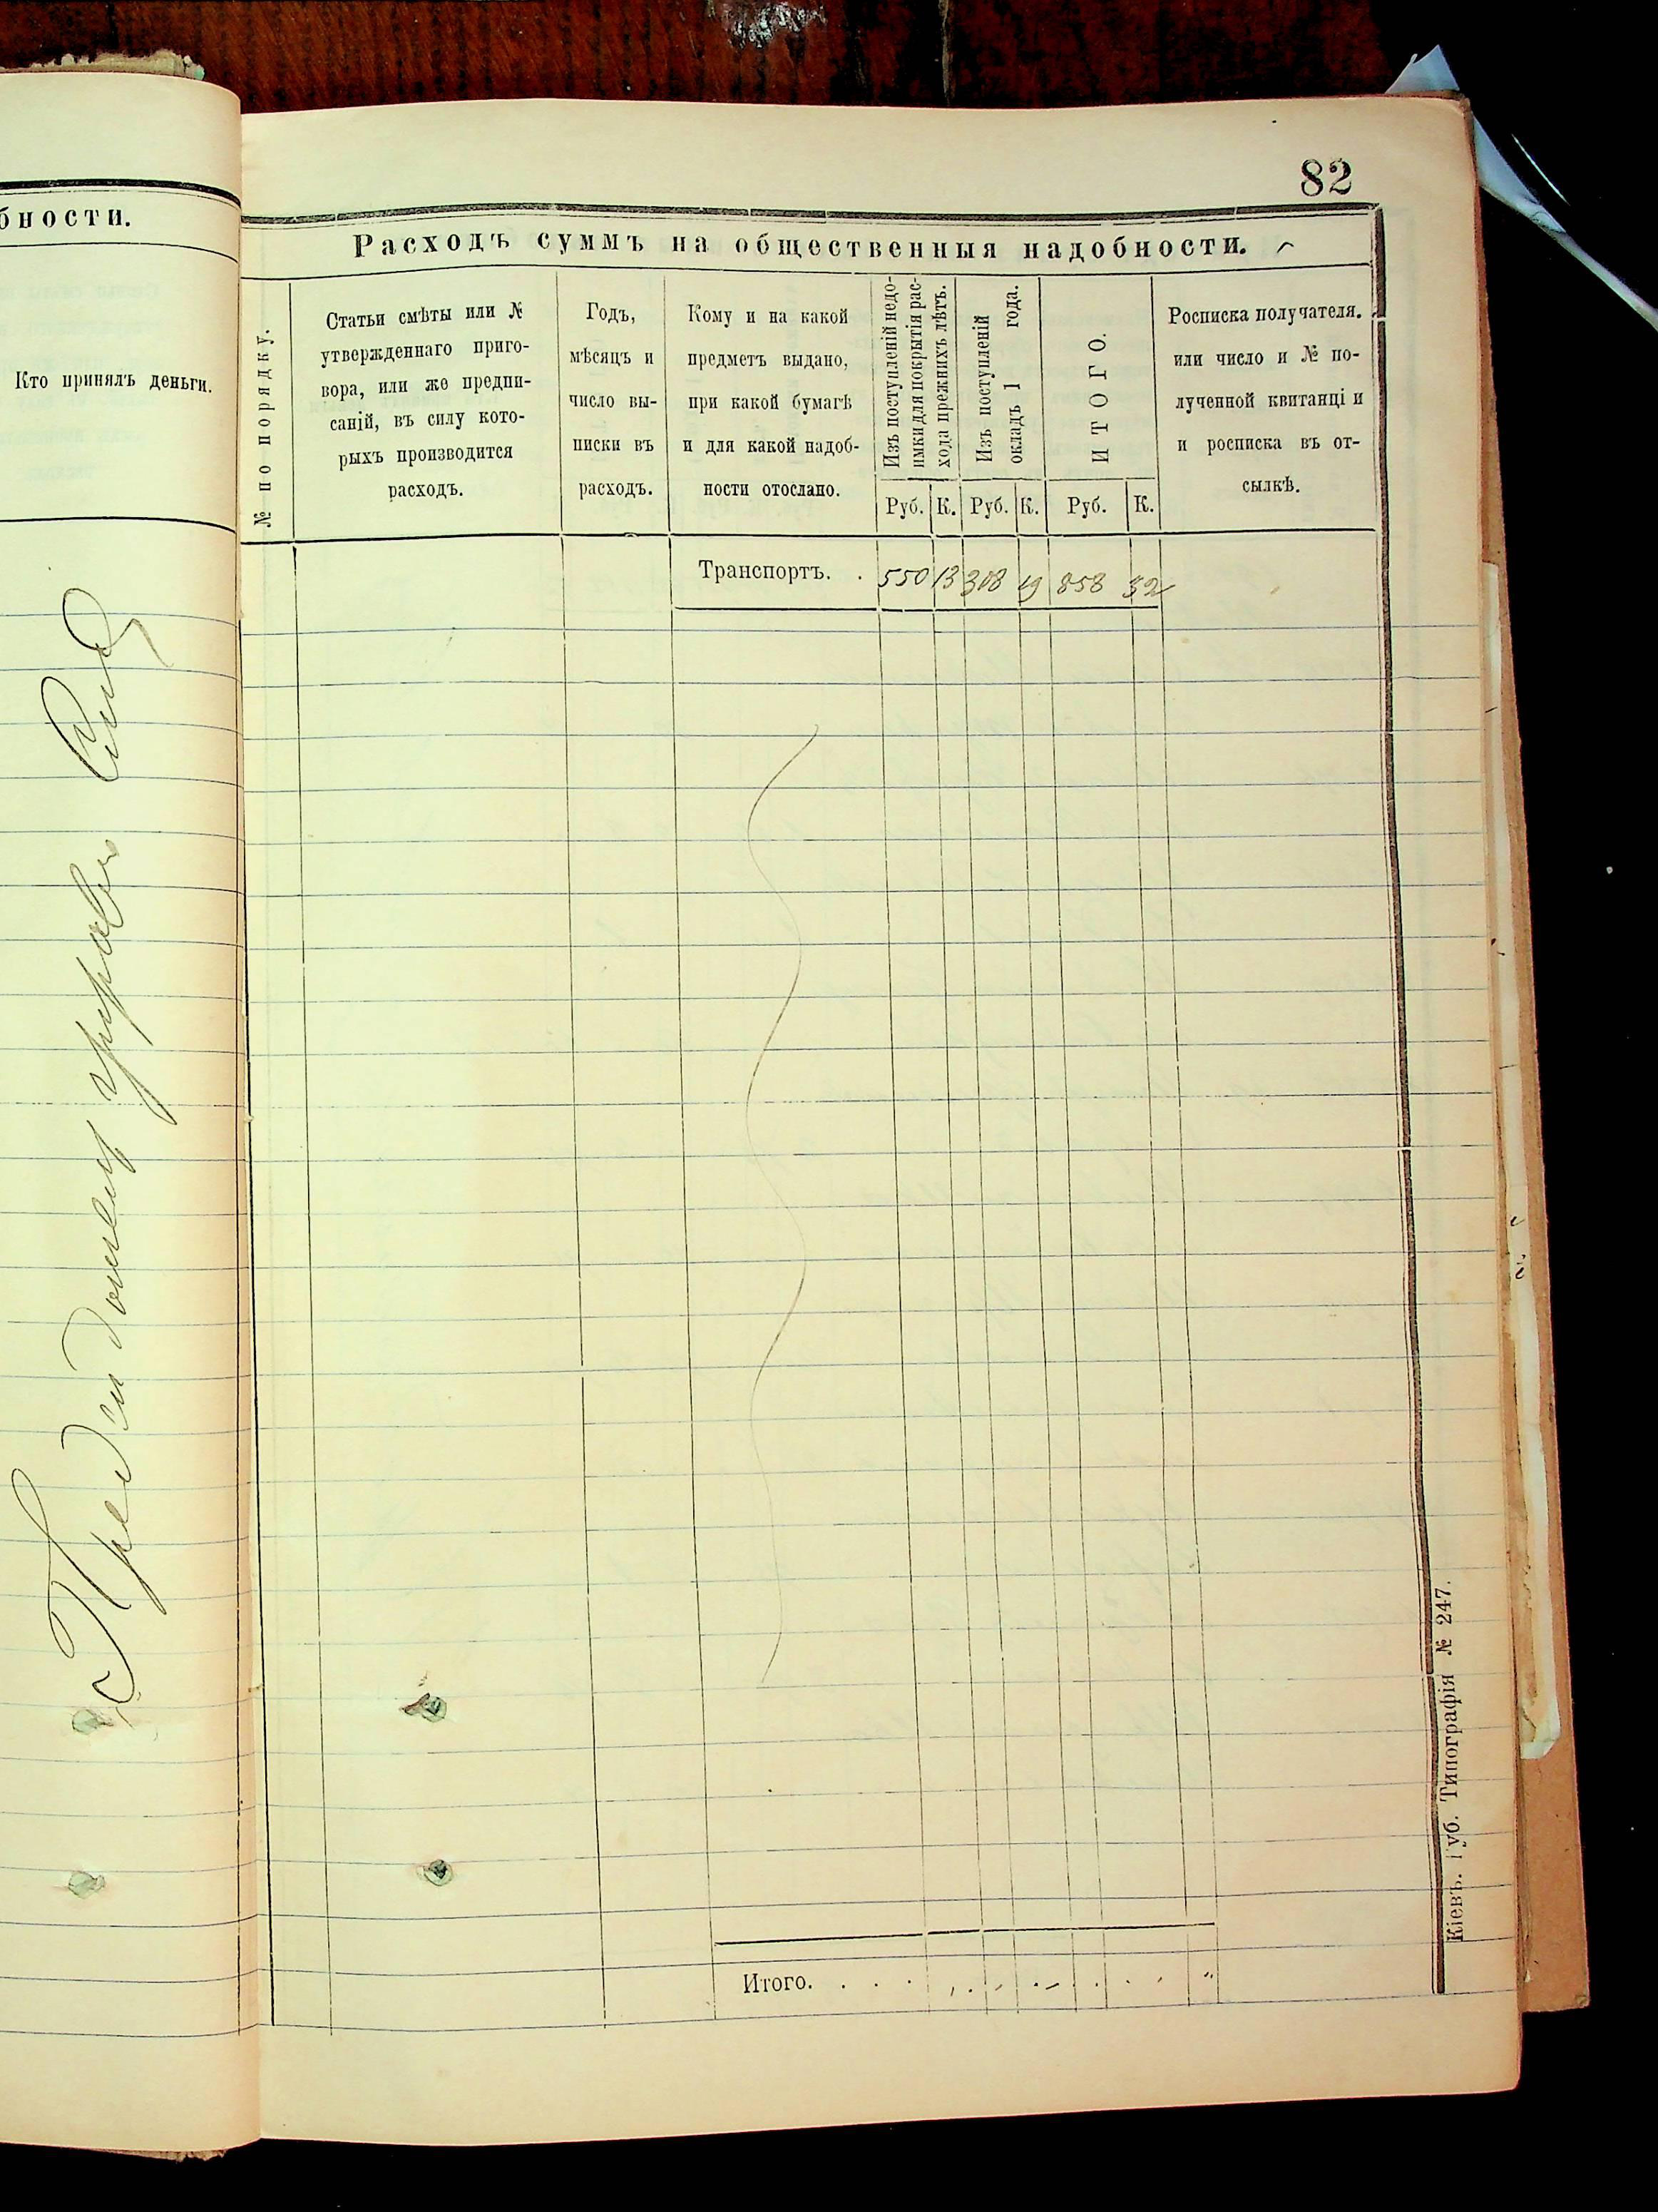 бности.
Кто принялъ деньги.
82
Расходъ суммъ на общественныя надобности.
№ по порядку.
Статьи смѣты или №
утвержденнаго приго-
вора, или же предпи-
саній, въ силу кото-
рыхъ производится
расходъ.
Годъ,
мѣсяцъ и
число вы-
писки въ
расходъ.
Кому и на какой
предметъ выдано,
при какой бумагѣ
и для какой надоб-
ности отослано.
Изъ поступленій недо-
имки для покрытія рас-
хода прежнихъ лѣтъ.
Изъ поступленій
окладъ 1 года.
ИТОГО.
Росписка получателя.
или число и № по-
лученной квитанціи
и росписка въ от-
сылкѣ.
Руб. К. Руб. К. Руб. К.
Транспортъ. . 550 13 308 19 858 32
Итого. . . .
Кіевъ. Губ. Типографія № 247.